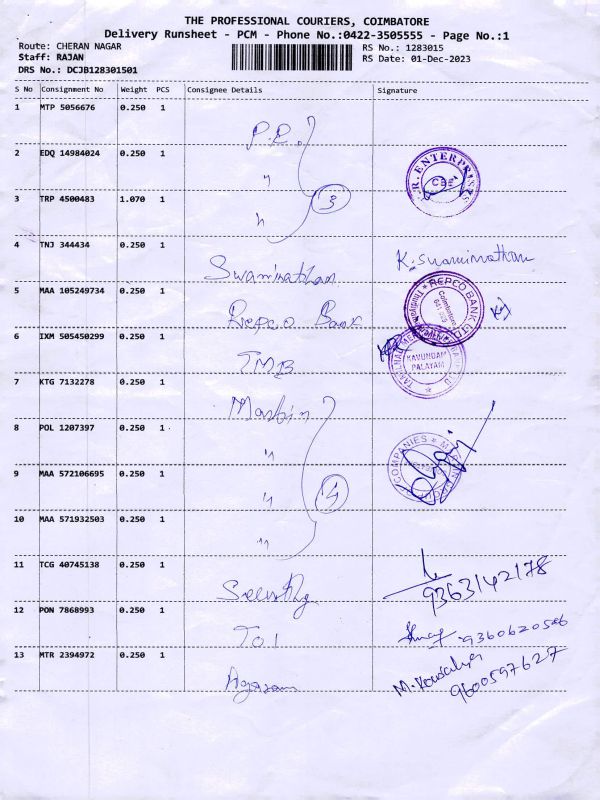 THE PROFESSIONAL COURIERS, COIMBATORE
Delivery Runsheet - PCM - Phone No.:0422-3505555 - Page No.:1
Route: CHERAN NAGAR RS No.: 1283015
Staff: RAJAN RS Date: 01-Dec-2023
DRS No.: DCJB128301501
S No Consignment No Weight PCS Consignee Details Signature
1 MTP 5056676 0.250 1 P.R.
2 EDQ 14984024 0.250 1 " R. ENTERPRISES CBE
3 TRP 4500483 1.070 1 " 3
4 TNJ 344434 0.250 1 Swaminathan K. Swaminathan
5 MAA 105249734 0.250 1 Repco Bank REPCO BANK LTD Coimbatore
6 IXM 505450299 0.250 1 TMB KAVUNDAM PALAYAM
7 KTG 7132278 0.250 1 Martin
8 POL 1207397 0.250 1 "
9 MAA 572106695 0.250 1 " 4 COMPANIES
10 MAA 571932503 0.250 1 "
11 TCG 40745138 0.250 1 9363142178
12 PON 7868993 0.250 1 TOI 9360620566
13 MTR 2394972 0.250 1 Agaram M. Kowsalya
9600597627